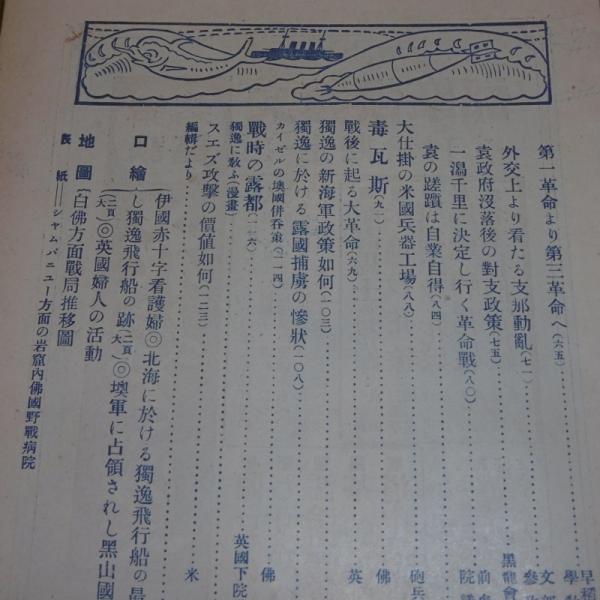 第一革命より第三革命へ(六五)
早稻
學
外交上より看たる支那動亂(七一)
文部
參
袁政府沒落後の對支政策(七五)
黑龍會
一瀉千里に決定し行く革命戰(八〇)
前
院
袁の蹉蹟は自業自得(八四)
大仕掛の米國兵器工場(八八)
砲兵
毒瓦斯(九一)
佛
戰後に起る大革命(六九)
英
獨逸の新海軍政策如何(一〇三)
獨逸に於ける露國捕虜の慘狀(一〇八)
カイゼルの墺國併呑策(一一四)
佛
戰時の露都(一一六)
英國下院
獨逸に敎ふ(漫畫)
スエズ攻擊の價値如何(一二三)
米
編輯だより
口繪
伊國赤十字看護婦◎北海に於ける獨逸飛行船の最
し獨逸飛行船の跡(二頁大)◎墺軍に占領されし黑山國
(二頁大)◎英國婦人の活動
地圖
白佛方面戰局推移圖
表紙──シャムパニユー方面の岩窟內佛國野戰病院